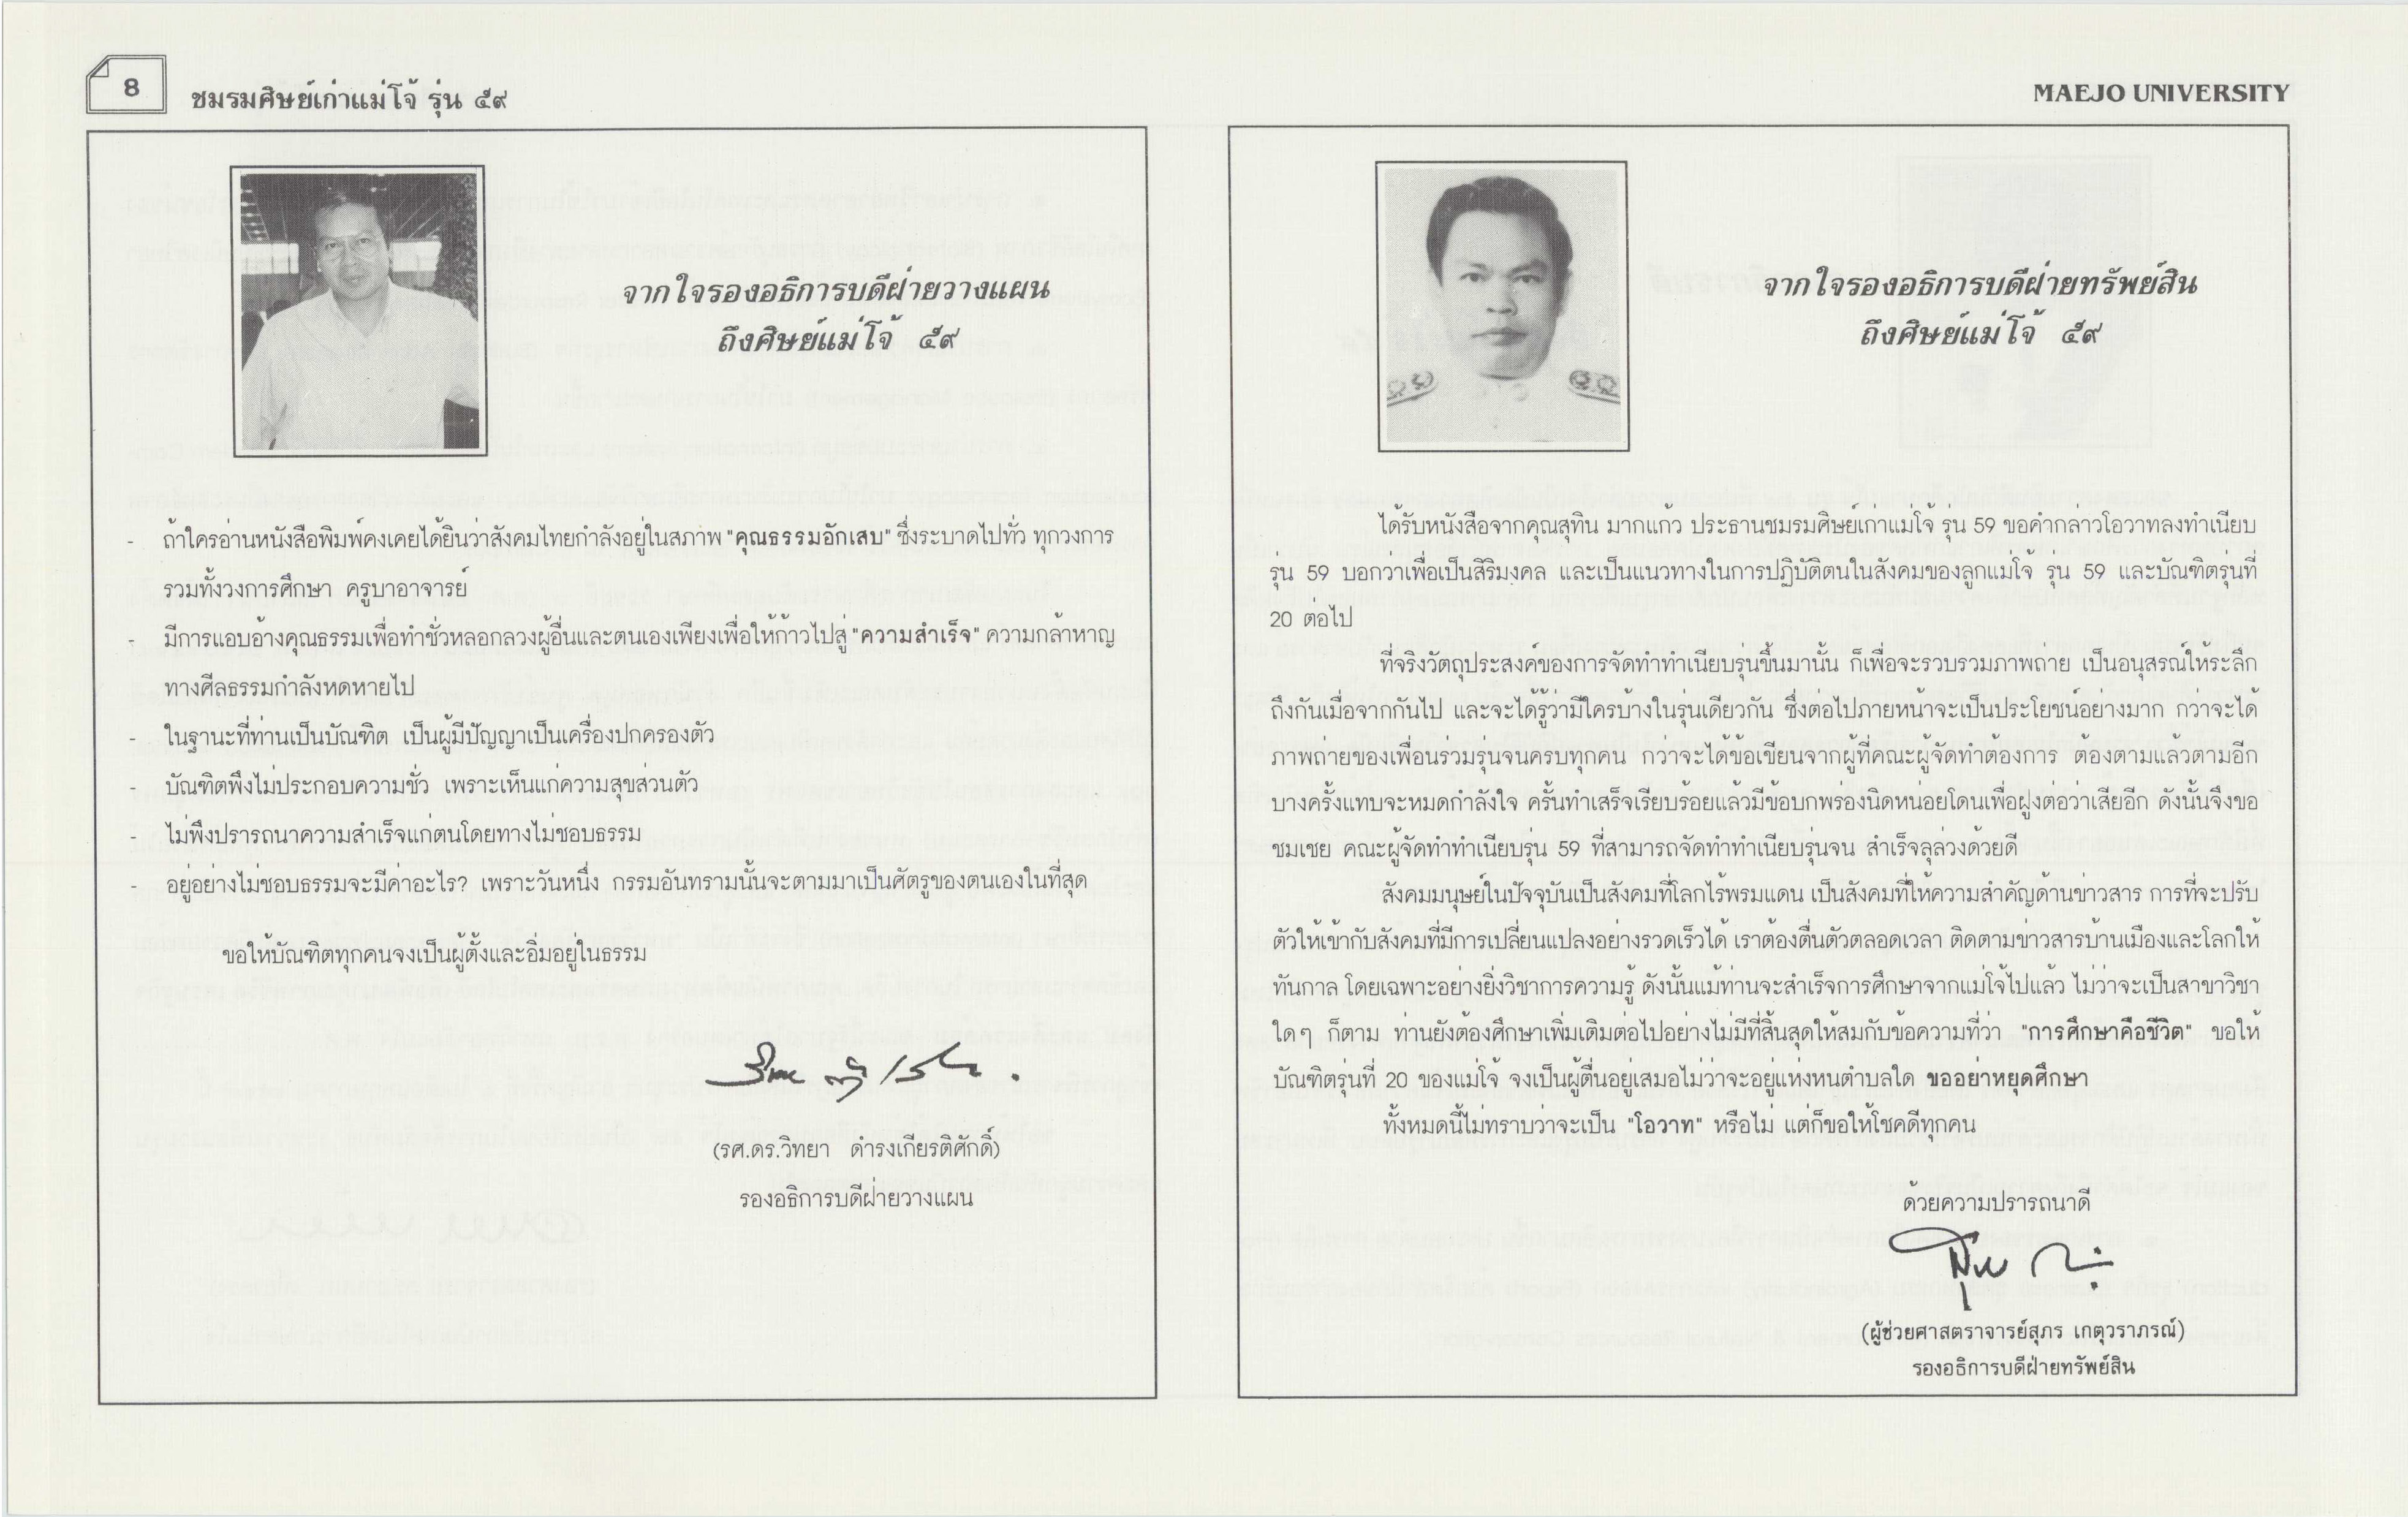 8
ชมรมศิษย์เก่าแม่โจ้ รุ่น ๕๙
MAEJO UNIVERSITY
จากใจรองอธิการบดีฝ่ายวางแผน
ถึงศิษย์แม่โจ้ ๕๙
- ถ้าใครอ่านหนังสือพิมพ์คงเคยได้ยินว่าสังคมไทยกำลังอยู่ในสภาพ "คุณธรรมอักเสบ" ซึ่งระบาดไปทั่ว ทุกวงการ
รวมทั้งวงการศึกษา ครูบาอาจารย์
- มีการแอบอ้างคุณธรรมเพื่อทำชั่วหลอกลวงผู้อื่นและตนเองเพียงเพื่อให้ก้าวไปสู่ "ความสำเร็จ" ความกล้าหาญ
ทางศีลธรรมกำลังหดหายไป
- ในฐานะที่ท่านเป็นบัณฑิต เป็นผู้มีปัญญาเป็นเครื่องปกครองตัว
- บัณฑิตพึงไม่ประกอบความชั่ว เพราะเห็นแก่ความสุขส่วนตัว
- ไม่พึงปรารถนาความสำเร็จแก่ตนโดยทางไม่ชอบธรรม
- อยู่อย่างไม่ชอบธรรมจะมีค่าอะไร? เพราะวันหนึ่ง กรรมอันทรามนั้นจะตามมาเป็นศัตรูของตนเองในที่สุด
ขอให้บัณฑิตทุกคนจงเป็นผู้ตั้งและอิ่มอยู่ในธรรม
(รศ.ดร.วิทยา ดำรงเกียรติศักดิ์)
รองอธิการบดีฝ่ายวางแผน
จากใจรองอธิการบดีฝ่ายทรัพย์สิน
ถึงศิษย์แม่โจ้ ๕๙
ได้รับหนังสือจากคุณสุทิน มากแก้ว ประธานชมรมศิษย์เก่าแม่โจ้ รุ่น 59 ขอคำกล่าวโอวาทลงทำเนียบ
รุ่น 59 บอกว่าเพื่อเป็นสิริมงคล และเป็นแนวทางในการปฏิบัติตนในสังคมของลูกแม่โจ้ รุ่น 59 และบัณฑิตรุ่นที่
20 ต่อไป
ที่จริงวัตถุประสงค์ของการจัดทำทำเนียบรุ่นขึ้นมานั้น ก็เพื่อจะรวบรวมภาพถ่าย เป็นอนุสรณ์ให้ระลึก
ถึงกันเมื่อจากกันไป และจะได้รู้ว่ามีใครบ้างในรุ่นเดียวกัน ซึ่งต่อไปภายหน้าจะเป็นประโยชน์อย่างมาก กว่าจะได้
ภาพถ่ายของเพื่อนร่วมรุ่นจนครบทุกคน กว่าจะได้ข้อเขียนจากผู้ที่คณะผู้จัดทำต้องการ ต้องตามแล้วตามอีก
บางครั้งแทบจะหมดกำลังใจ ครั้นทำเสร็จเรียบร้อยแล้วมีข้อบกพร่องนิดหน่อยโดนเพื่อฝูงต่อว่าเสียอีก ดังนั้นจึงขอ
ชมเชย คณะผู้จัดทำทำเนียบรุ่น 59 ที่สามารถจัดทำทำเนียบรุ่นจน สำเร็จลุล่วงด้วยดี
สังคมมนุษย์ในปัจจุบันเป็นสังคมที่โลกไร้พรมแดน เป็นสังคมที่ให้ความสำคัญด้านข่าวสาร การที่จะปรับ
ตัวให้เข้ากับสังคมที่มีการเปลี่ยนแปลงอย่างรวดเร็วได้ เราต้องตื่นตัวตลอดเวลา ติดตามข่าวสารบ้านเมืองและโลกให้
ทันกาล โดยเฉพาะอย่างยิ่งวิชาการความรู้ ดังนั้นแม้ท่านจะสำเร็จการศึกษาจากแม่โจ้ไปแล้ว ไม่ว่าจะเป็นสาขาวิชา
ใดๆ ก็ตาม ท่านยังต้องศึกษาเพิ่มเติมต่อไปอย่างไม่มีที่สิ้นสุดให้สมกับข้อความที่ว่า "การศึกษาคือชีวิต" ขอให้
บัณฑิตรุ่นที่ 20 ของแม่โจ้ จงเป็นผู้ตื่นอยู่เสมอไม่ว่าจะอยู่แห่งหนตำบลใด ขออย่าหยุดศึกษา
ทั้งหมดนี้ไม่ทราบว่าจะเป็น "โอวาท" หรือไม่ แต่ก็ขอให้โชคดีทุกคน
ด้วยความปรารถนาดี
(ผู้ช่วยศาสตราจารย์สุภร เกตุวราภรณ์)
รองอธิการบดีฝ่ายทรัพย์สิน